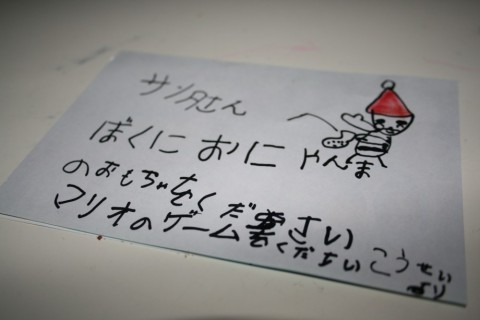 サンタさん
ぼくに おにやんま
のおもちゃをください
マリオのゲームをください こうせい
より